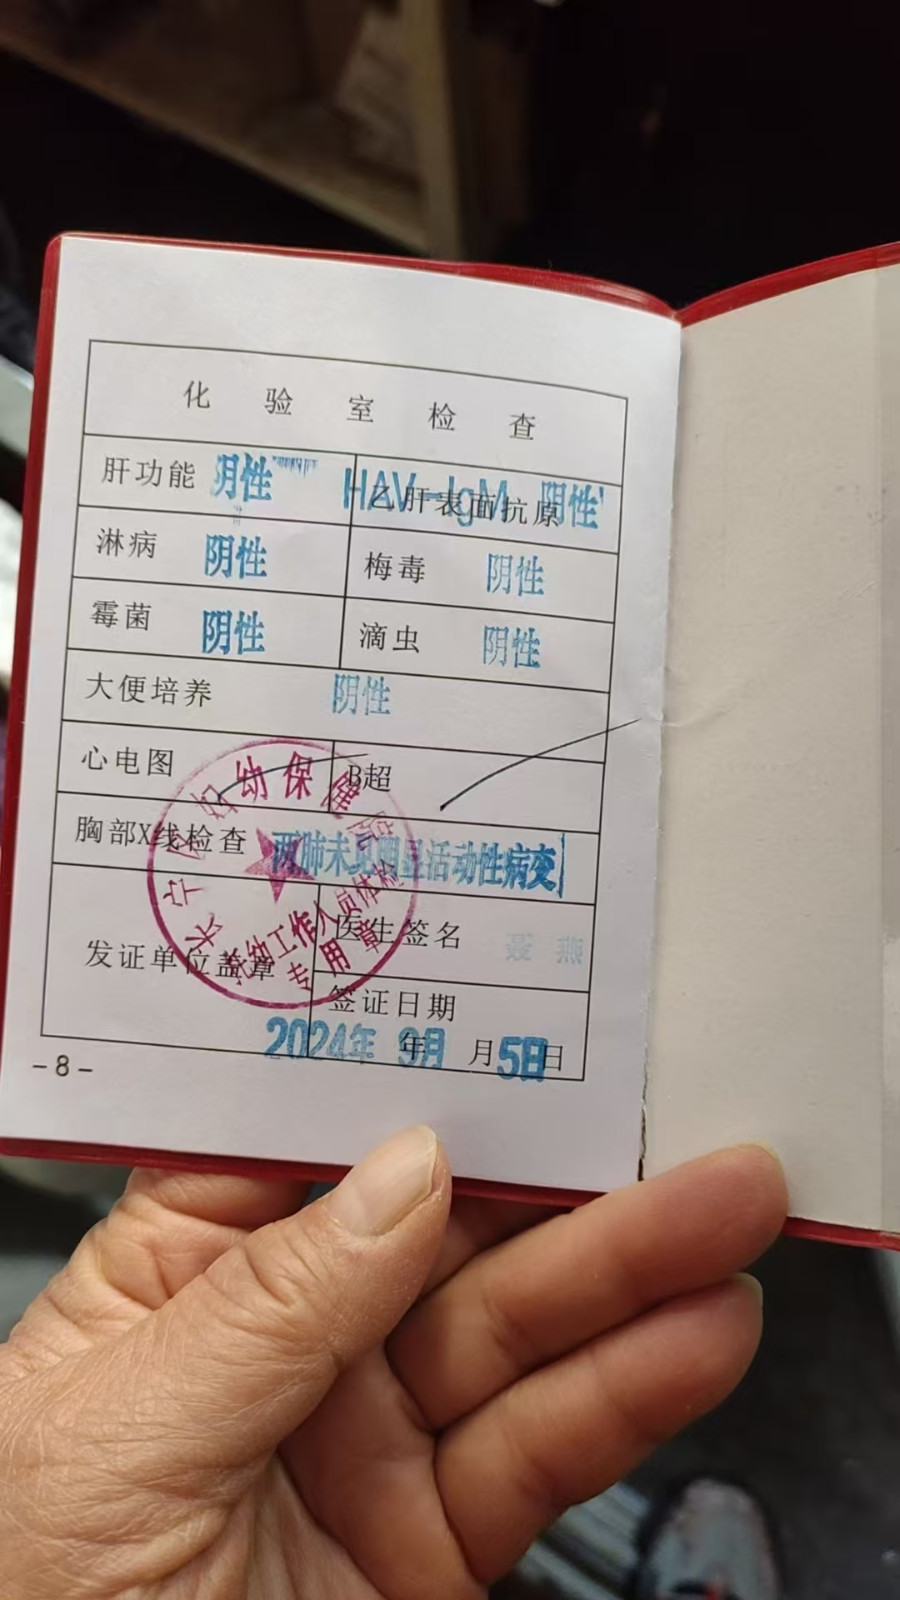 化验室检查
肝功能 阴性 乙肝表面抗原 HAV-IgM 阴性
淋病 阴性 梅毒 阴性
霉菌 阴性 滴虫 阴性
大便培养 阴性
心电图 B超
胸部X线检查 两肺未见明显活动性病变
发证单位盖章 医生签名 聂燕
长宁区妇幼保健院
托幼工作人员体检
专用章
签证日期
2024年 9月 5日
年 月 日
-8-